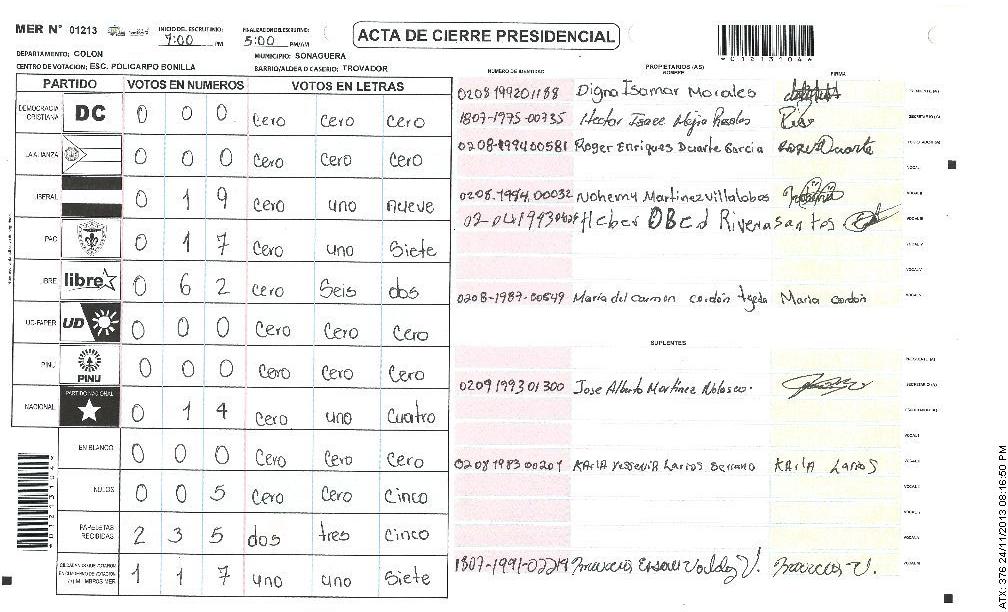 MER N° 01213
INICIO DEL ESCRUTINIO:
7:00 PM
FINALIZACION ESCRUTINIO:
5:00 PM/AM
ACTA DE CIERRE PRESIDENCIAL
DEPARTAMENTO: COLON
MUNICIPIO: SONAGUERA
CENTRO DE VOTACION: ESC. POLICARPO BONILLA
BARRIO/ALDEA O CASERIO: TROVADOR
PARTIDO VOTOS EN NUMEROS VOTOS EN LETRAS
DEMOCRACIA CRISTIANA DC 0 0 0 Cero Cero Cero
LA ALIANZA 0 0 0 Cero Cero Cero
LIBERAL 0 1 9 Cero uno nueve
PAC 0 1 7 Cero uno Siete
LIBRE libre 0 6 2 Cero Seis dos
UD-FAPER UD 0 0 0 Cero Cero Cero
PINU PINU 0 0 0 Cero Cero Cero
NACIONAL PARTIDO NACIONAL 0 1 4 Cero uno Cuatro
EN BLANCO 0 0 0 Cero Cero Cero
NULOS 0 0 5 Cero Cero Cinco
PAPELETAS RECIBIDAS 2 3 5 dos tres Cinco
CIUDADANOS QUE VOTARON EN CUADERNO DE VOTACION Y MIEMBROS MER 1 1 7 uno uno Siete
NUMERO DE IDENTIDAD
PROPIETARIOS (AS)
NOMBRE
FIRMA
0208199201188 Digna Isamar Morales
1807-1975-00735 Hector Isaec Mejia
0208-199400581 Roger Enriques Duarte Garcia Roger Duarte
0208-1994.00032 Nohemy Martinez Villalobos
Heber OBed Rivera Santos
0208-1987-00549 Maria del Carmen cordón Maria Cordón
SUPLENTES
0209199301300 Jose Alberto Martinez Nolasco.
0208198300201 KArlA Yessenia Larios Serrano KArlA LARIOS
1807-1991-02219 Marcos V. Marcos V.
ATX: 376 24/11/2013 08:16:50 PM